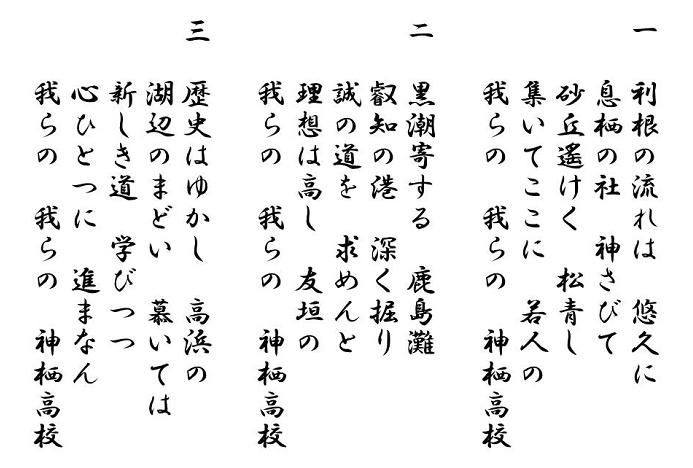 一
利根の流れは　悠久に
息栖の社　神さびて
砂丘遙けく　松青し
集いてここに　若人の
我らの　我らの　神栖高校
二
黒潮寄する　鹿島灘
叡知の港　深く掘り
誠の道を　求めんと
理想は高し　友垣の
我らの　我らの　神栖高校
三
歴史はゆかし　高浜の
湖辺のまどい　慕いては
新しき道　学びつつ
心ひとつに　進まなん
我らの　我らの　神栖高校